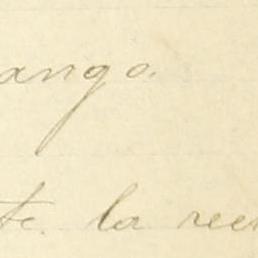 ango.
te la reci